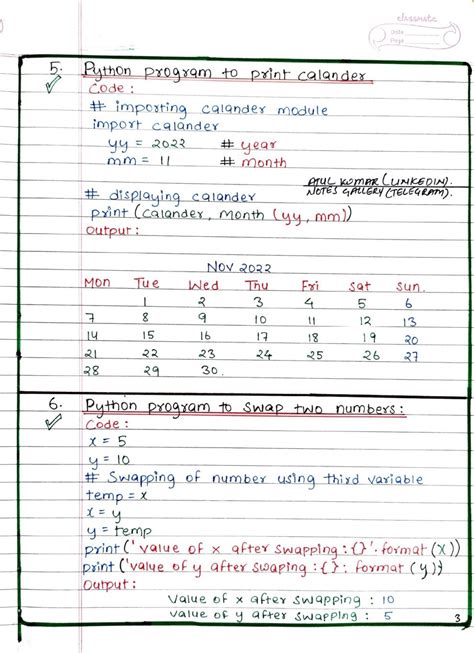 classmate
Date
Page
5. Python program to print calander
Code :
# importing calander module
import calander
yy = 2022 # year
mm = 11 # month
ATUL KUMAR (LINKEDIN).
NOTES GALLERY (TELEGRAM).
# displaying calander
print (calander, month (yy, mm))
Output :
Nov 2022
Mon Tue Wed Thu Fri Sat Sun.
1 2 3 4 5 6
7 8 9 10 11 12 13
14 15 16 17 18 19 20
21 22 23 24 25 26 27
28 29 30.
6. Python program to swap two numbers :
Code :
x = 5
y = 10
# Swapping of number using third variable
temp = x
x = y
y = temp
print ('value of x after swapping : {}'. format (x))
print ('value of y after swaping : { } : format (y)}
Output :
Value of x after swapping : 10
Value of y after swapping : 5
3